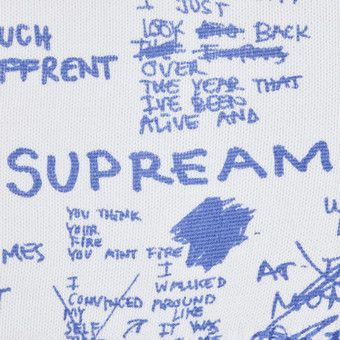 I JUST
LOOK BACK
OVER
THE YEAR THAT
I'VE BEEN
ALIVE AND
UCH
FFRENT
SUPREAM
YOU THINK
YOUR
FIRE
YOU AINT FIRE
I
CONVINCED
MY
SELF
I
WALKED
AROUND
LIKE
IT WAS
MES
AT